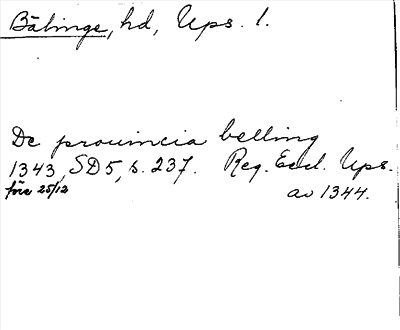 Bälinge, hd, Ups. l.
De prouincia belling
1343, SD5, s. 237. Reg. Eccl. Ups.
före 25/12 av 1344.